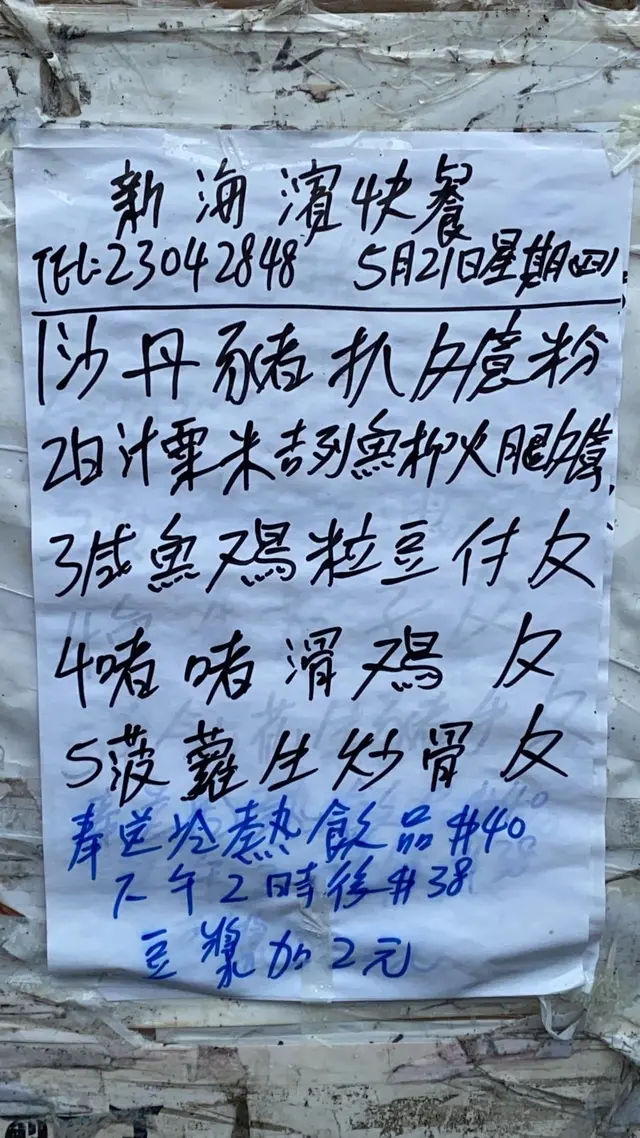 新海濱快餐
TEL:23042848 5月21日星期四
1沙丹豬扒反意粉
2白汁粟米吉列魚柳火腿反意
3咸魚鸡粒豆付反
4啫啫滑鸡反
5菠蘿生炒骨反
奉送冷熱飲品#40
下午2時後#38
豆漿加2元